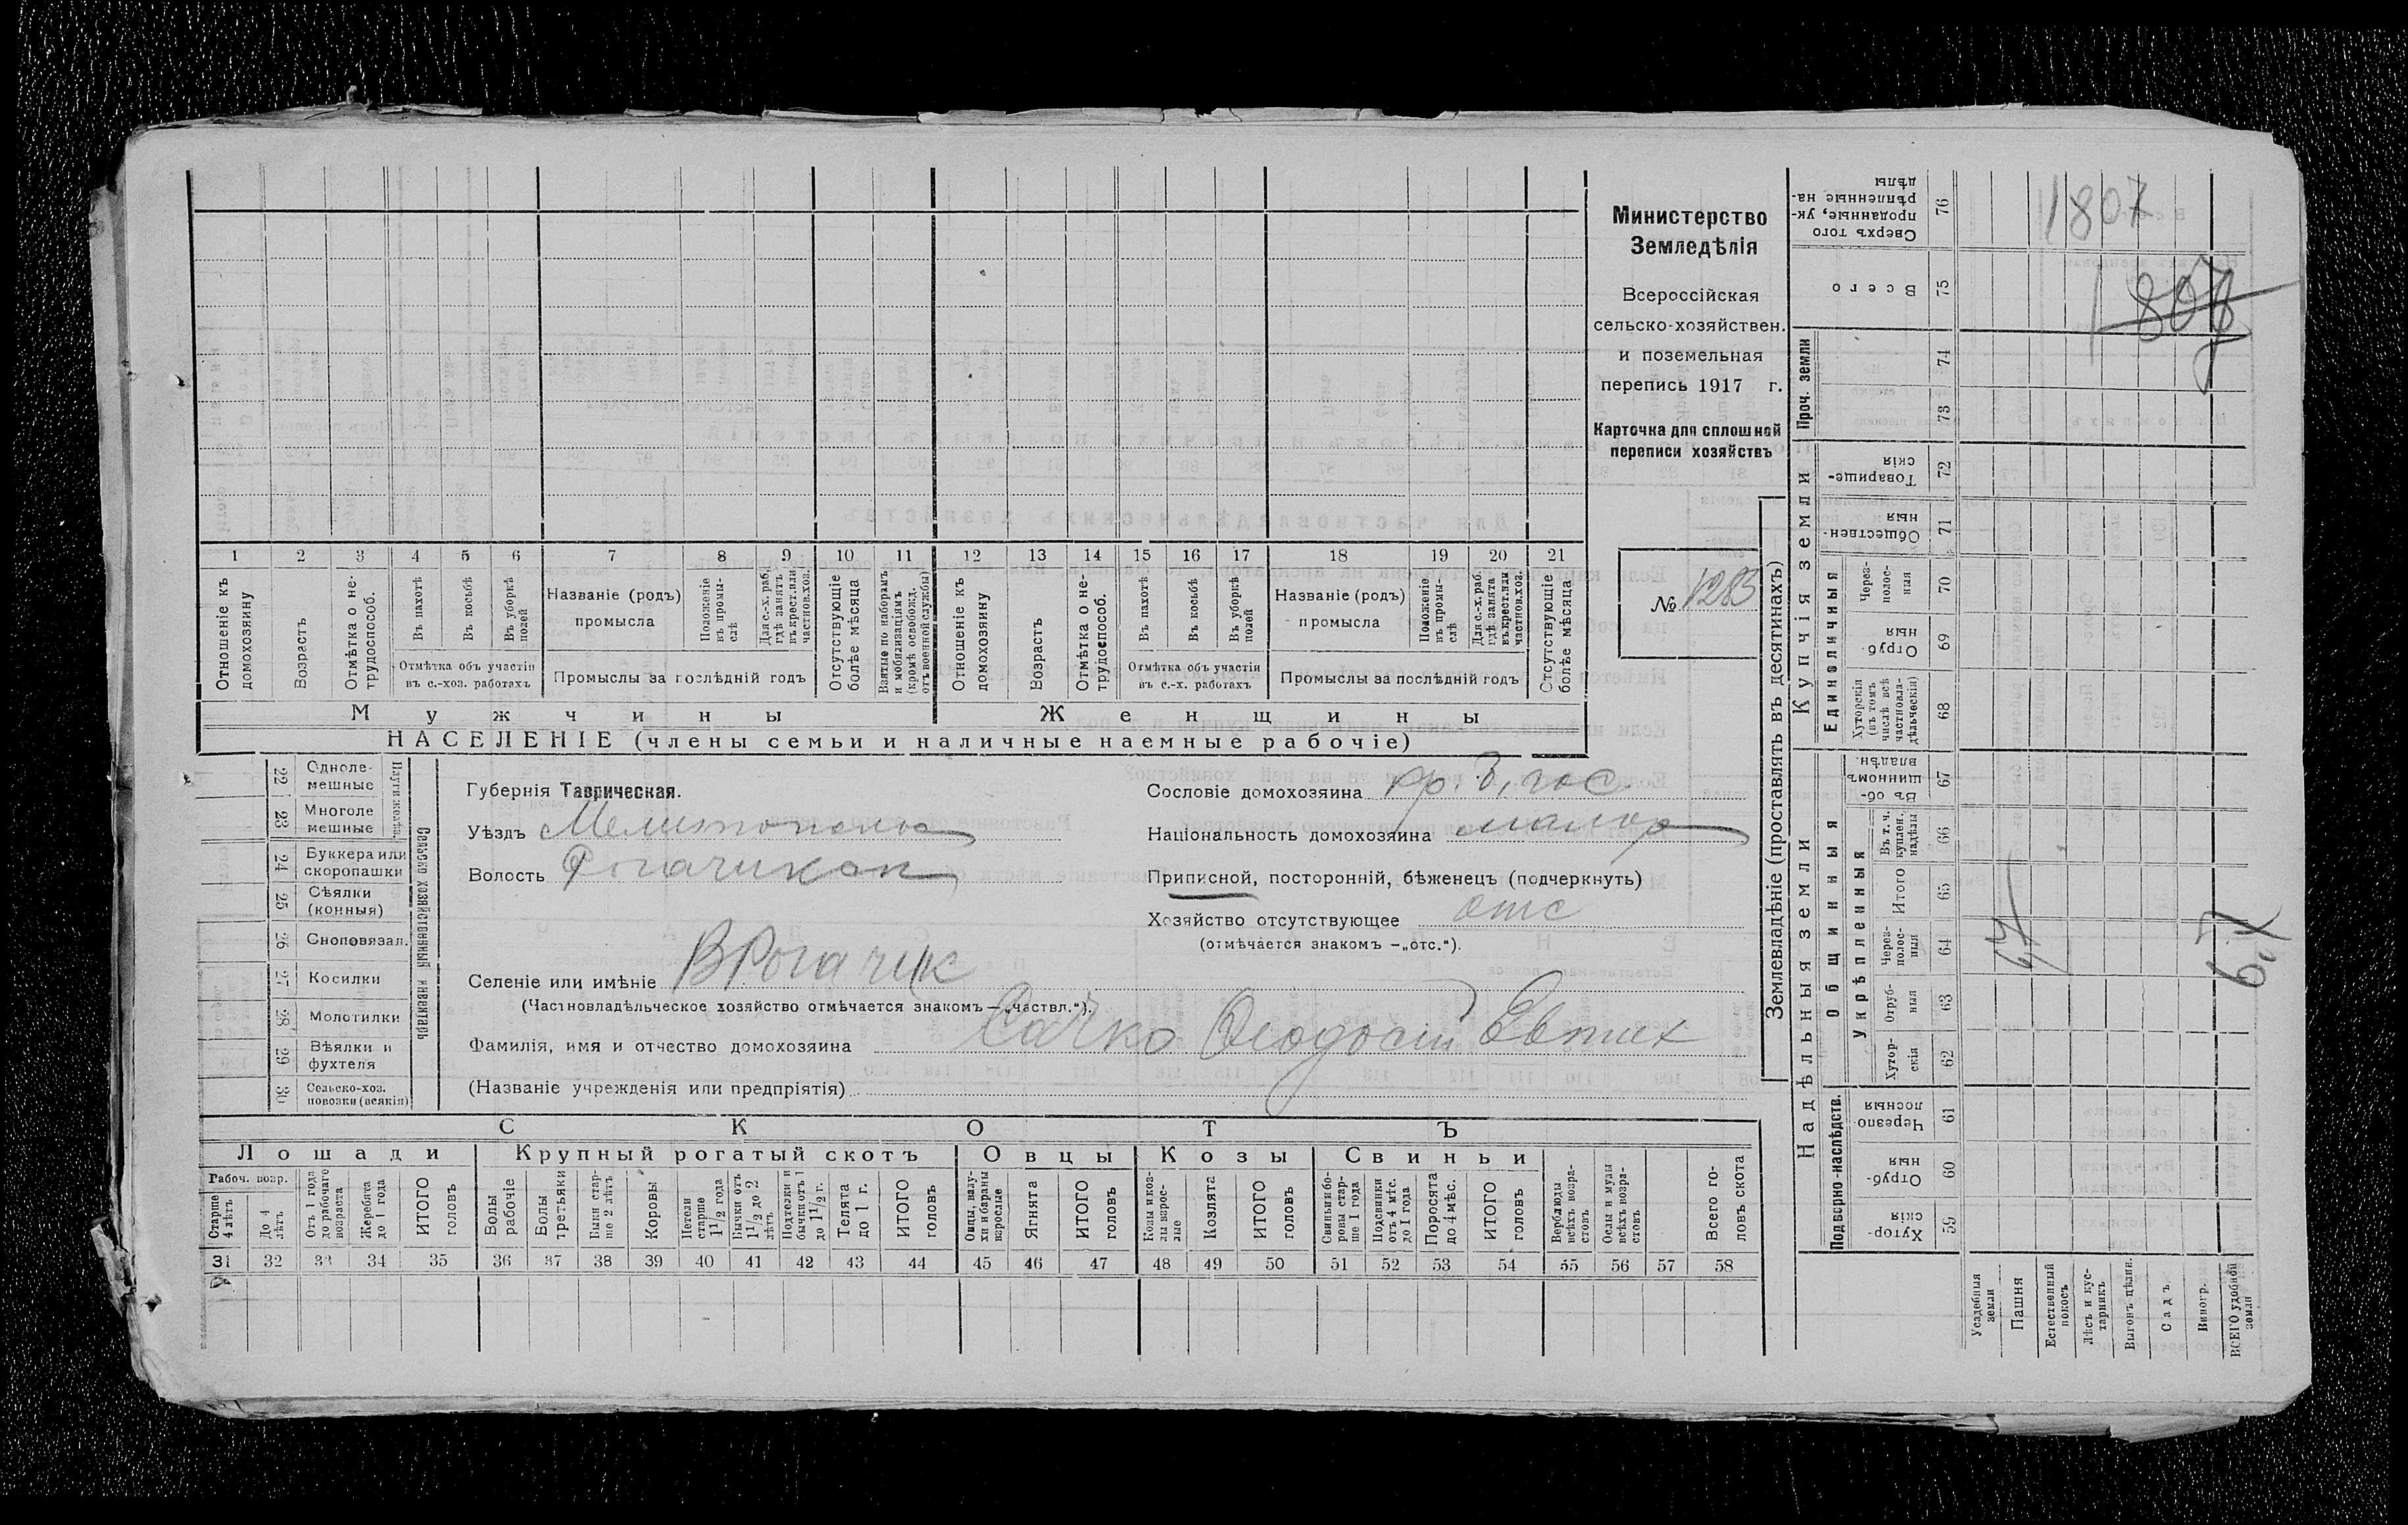 Министерство
Земледѣлія
Всероссійская
сельско-хозяйствен.
и поземельная
перепись 1917 г.
Карточка для сплошной
переписи хозяйствъ
№ 1283
1 2 3 4 5 6 7 8 9 10 11 12 13 14 15 16 17 18 19 20 21
Отношеніе къ домохозяину
Возрастъ
Отмѣтка о не-трудоспособ.
Въ пахотѣ
Въ косьбѣ
Въ уборкѣ полей
Отмѣтка объ участіи
въ с.-хоз. работахъ
Названіе (родъ)
промысла
Положеніе въ промы-слѣ
Для с.-х. раб. гдѣ занятъ въ крест. или частнов. хоз.
Промыслы за послѣдній годъ
Отсутствующіе болѣе мѣсяца
Взятые по наборамъ и мобилизаціямъ (кромѣ освобожд. отъ военной службы)
Отношеніе къ домохозяину
Возрастъ
Отмѣтка о не-трудоспособ.
Въ пахотѣ
Въ косьбѣ
Въ уборкѣ полей
Отмѣтка объ участіи
въ с.-х. работахъ
Названіе (родъ)
промысла
Положеніе въ промы-слѣ
Для с.-х. раб. гдѣ занята въ крест. или частнов. хоз.
Промыслы за послѣдній годъ
Отсутствующіе болѣе мѣсяца
Мужчины Женщины
НАСЕЛЕНІЕ (члены семьи и наличные наемные рабочіе)
22 Одноле-мешные
23 Многоле мешные
24 Буккера или скоропашки
25 Сѣялки (конныя)
26 Сноповязал.
27 Косилки
28 Молотилки
29 Вѣялки и фухтеля
30 Сельско-хоз. повозки (всякія)
Сельско хозяйственный инвентарь
Губернія Таврическая.
Уѣздъ Мелитопольс
Волость Рогачикск
Селеніе или имѣніе В Рогачик
(Частновладѣльческое хозяйство отмѣчается знакомъ — „частвл.“).
Фамилія, имя и отчество домохозяина Сачко Ѳеодосій Евтих
(Названіе учрежденія или предпріятія)
Сословіе домохозяина
Національность домохозяина малор
Приписной, посторонній, бѣженецъ (подчеркнуть)
Хозяйство отсутствующее отс
(отмѣчается знакомъ —„отс.“).
СКОТЪ
Лошади Крупный рогатый скотъ Овцы Козы Свиньи
Рабоч. возр.
Старше 4 лѣтъ
До 4 лѣтъ
Отъ 1 года до рабочаго возраста
Жеребята до 1 года
ИТОГО головъ
Волы рабочіе
Волы третьяки
Быки стар-ше 2 лѣтъ
Коровы
Нетели старше 1 1/2 года
Бычки отъ 1 1/2 до 2 лѣтъ
Подтелки и бычки отъ 1 до 1 1/2 г.
Телята до 1 г.
ИТОГО головъ
Овцы, валу-хи и бараны взрослые
Ягнята
ИТОГО головъ
Козы и коз-лы взрос-лые
Козлята
ИТОГО головъ
Свиньи и бо-ровы стар-ше 1 года
Подсвинки отъ 4 мѣс. до 1 года
Поросята до 4 мѣс.
ИТОГО головъ
Верблюды всѣхъ возра-стовъ
Ослы и мулы всѣхъ возра-стовъ
Всего го-ловъ скота
31 32 33 34 35 36 37 38 39 40 41 42 43 44 45 46 47 48 49 50 51 52 53 54 55 56 57 58
Землевладѣніе (проставлять въ десятинахъ)
Надѣльныя земли
Купчія земли
Проч. земли
Подворно-наслѣдств.
Общинныя
Укрѣпленныя
Единоличныя
Сверхъ того проданные, ук-рѣпленные на-дѣлы 76
Всего 75
74
73
Товарище-скія 72
Обществен-ныя 71
Через-полос-ныя 70
Отруб-ныя 69
Хуторскія (въ томъ числѣ всѣ частновла-дѣльческія) 68
Въ об-щинномъ владѣн. 67
Въ т. ч. куплен. надѣлы 66
Итого 65
Через-полос-ныя 64
Отруб-ныя 63
Хутор-скія 62
Черезпо-лосныя 61
Отруб-ныя 60
Хутор-скія 59
Усадебныя земли
Пашня
Естественный покосъ
Лѣсъ и кус-тарникъ
Выгонъ цѣлин.
Садъ
Виногр.
ВСЕГО удобной земли
1807
1807
6,7